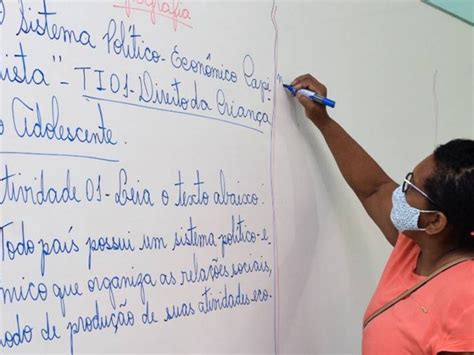 ografia
Sistema Político-Econômico Capi-
lista" - TI01-Direito da Criança
o Adolescente.
tividade 01- Leia o texto abaixo:
Todo país possui um sistema político-e-
mico que organiza as relações sociais,
modo de produção de suas atividades eco-